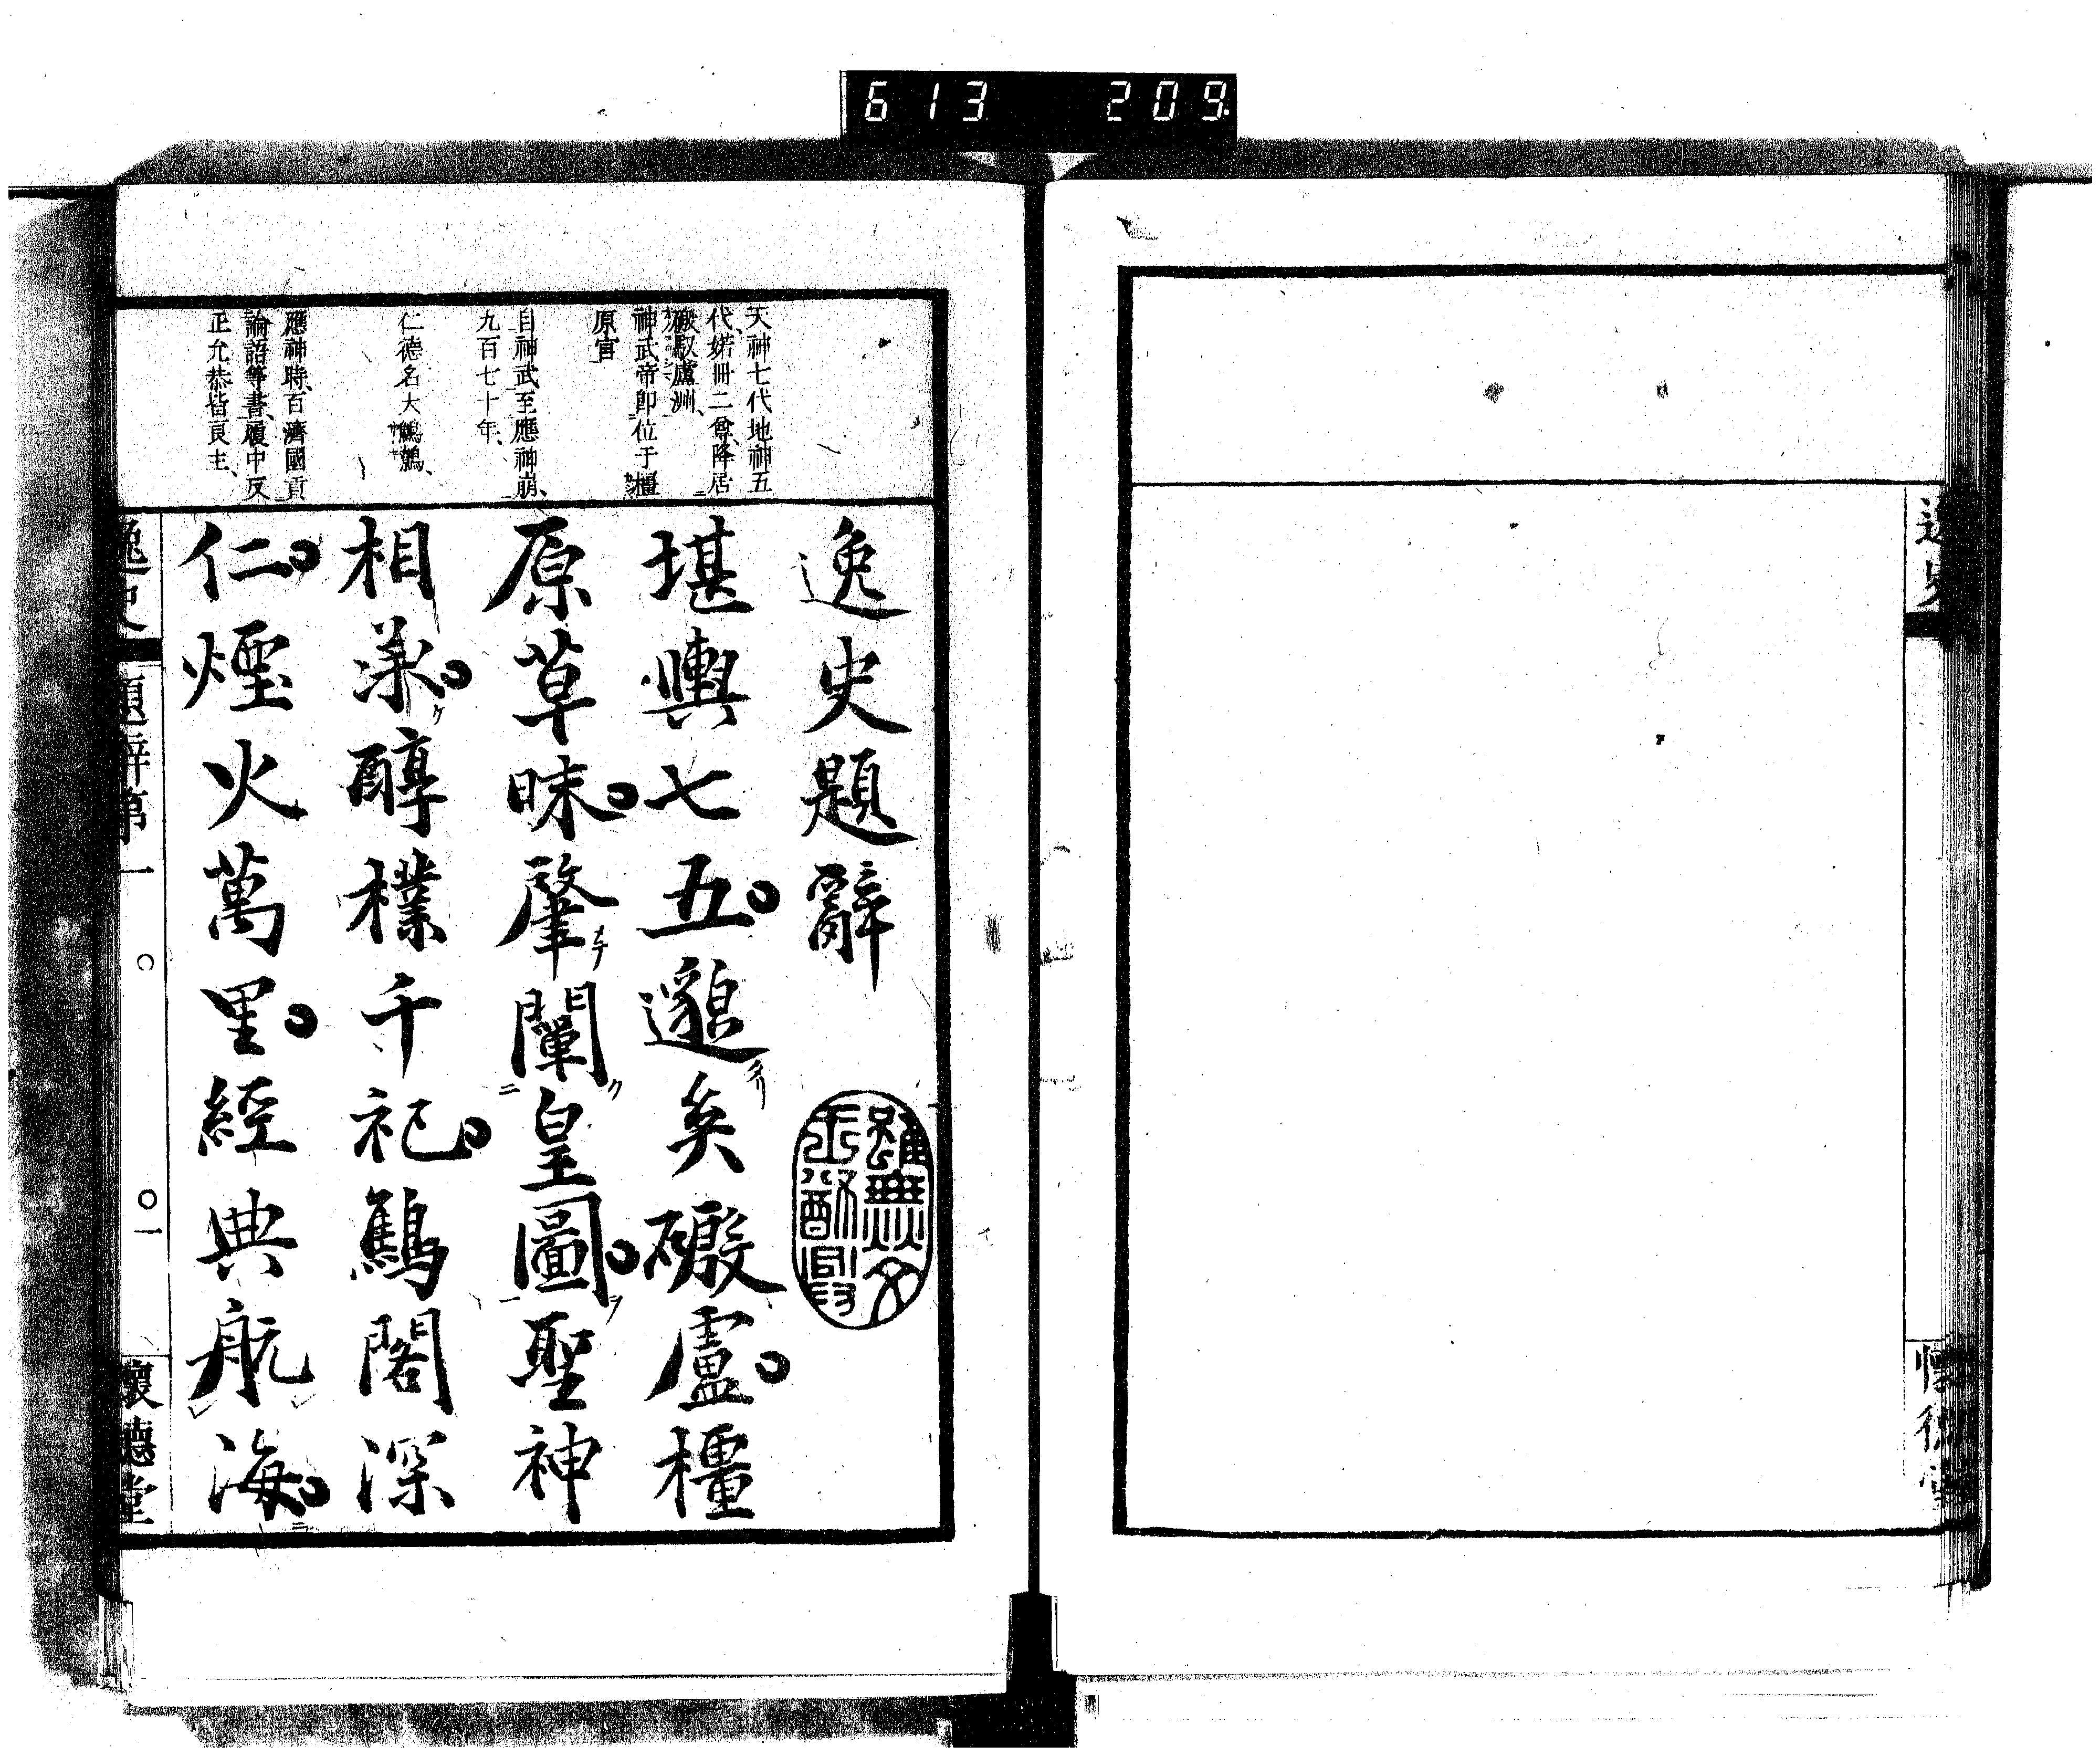 613 209
逸史
懷德堂
天神七代地神五
代、婼冊二尊、降居
磤馭盧洲、
神武帝卽位于橿
原宮
自神武至應神崩、
九百七十年、
仁德名大鷦鷯、
應神時、百濟國貢
論語等書、履中反
正允恭皆良主、
逸史題辭
堪輿七五邈矣磤盧橿
原草昧肇闡皇圖聖神
相承醇樸千祀鷦閣深
仁煙火萬里經典航海
逸史 題辭第一 〇一 懷德堂